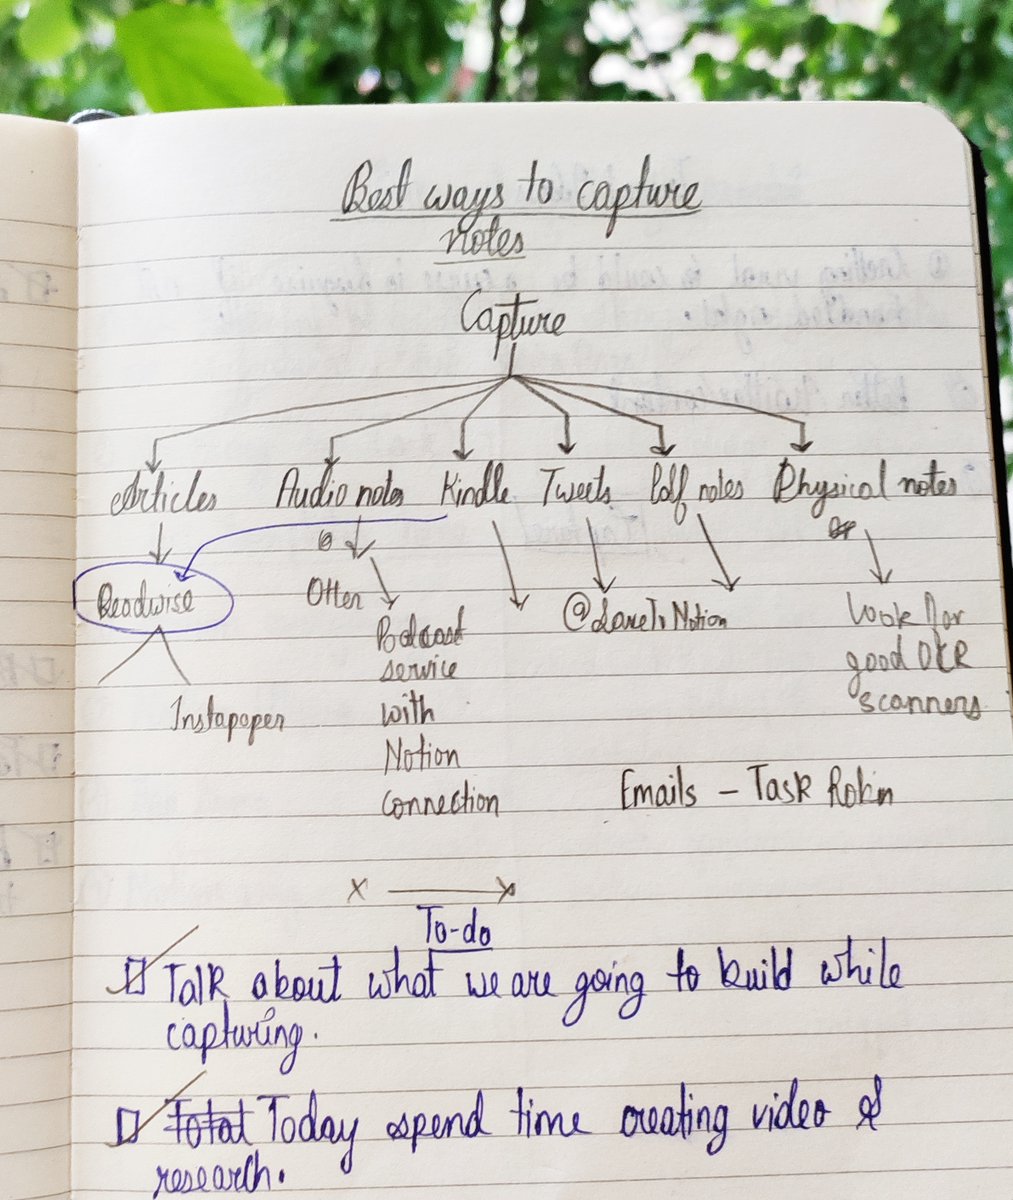 Best ways to capture
notes
Capture
Articles Audio notes Kindle Tweets Pdf notes Physical notes
Readwise
Otter
@SaveToNotion
Look for
good OCR
scanners
Podcast
service
with
Notion
connection
Instapaper
Emails - Task Robin
x
To-do
Talk about what we are going to build while
capturing.
Total Today spend time creating video &
research.